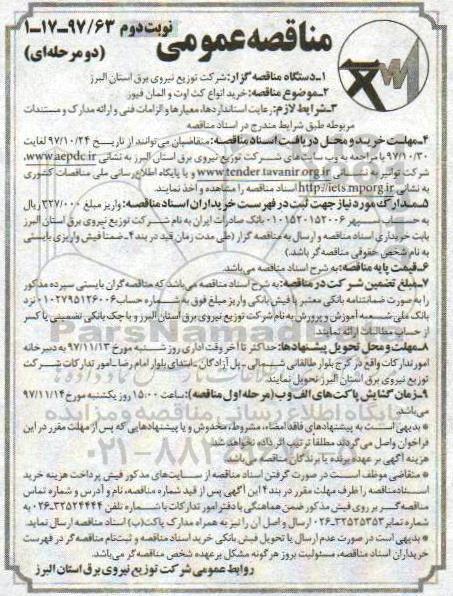 مناقصه عمومی
نوبت دوم ۹۷/۶۳-۱۷-۱
(دو مرحله‌ای)
۱-دستگاه مناقصه گزار: شرکت توزیع نیروی برق استان البرز
۲-موضوع مناقصه: خرید انواع کت اوت و المان فیوز
۳-شرایط لازم: رعایت استانداردها، معیارها و الزامات فنی و ارائه مدارک و مستندات
مربوطه طبق شرایط مندرج در اسناد مناقصه
۴-مهلت خرید و محل دریافت اسناد مناقصه: متقاضیان می‌توانند از تاریخ ۹۷/۱۰/۲۴ لغایت
۹۷/۱۰/۳۰ با مراجعه به وب سایت های شرکت توزیع نیروی برق استان البرز به نشانی www.aepdc.ir،
شرکت توانیر به نشانی www.tender.tavanir.org.ir و یا پایگاه اطلاع رسانی ملی مناقصات کشوری
به نشانی http://iets.mporg.ir اسناد مناقصه را مشاهده و اخذ نمایند.
۵-مدارک مورد نیاز جهت ثبت در فهرست خریداران اسناد مناقصه: واریز مبلغ ۳۲۷/۰۰۰ ریال
به حساب سپهر ۰۱۰۱۵۲۰۱۵۲۰۰۶ بانک صادرات ایران به نام شرکت توزیع نیروی برق استان البرز
بابت خریداری اسناد مناقصه و ارسال به مناقصه گزار (طی مدت زمان قید در بند ۴-ضمنا فیش واریزی بایستی
به نام شخص حقوقی مناقصه گر باشد)
۶-قیمت پایه مناقصه: به شرح اسناد مناقصه می‌باشد.
۷-مبلغ تضمین شرکت در مناقصه: به شرح اسناد مناقصه می‌باشد که مناقصه گران بایستی سپرده مذکور
را به صورت ضمانتنامه بانکی معتبر یا فیش بانکی واریز مبلغ فوق به شماره حساب ۰۱۰۲۷۹۵۱۲۶۰۰۶ نزد
بانک ملی شعبه آموزش و پرورش به نام شرکت توزیع نیروی برق استان البرز و یا چک بانکی تضمینی یا کسر
از حساب مطالبات ارائه نمایند.
۸-مهلت و محل تحویل پیشنهادها: حداکثر تا آخر وقت اداری روز شنبه مورخ ۹۷/۱۱/۱۳ به دبیرخانه
امور تدارکات واقع در کرج بلوار طالقانی شمالی-پل آزادگان-ابتدای بلوار امام رضا-امور تدارکات شرکت
توزیع نیروی برق استان البرز تحویل نمایند.
۹-زمان گشایش پاکت‌های الف و ب (مرحله اول مناقصه): ساعت ۱۵:۰۰ روز یکشنبه مورخ ۹۷/۱۱/۱۴
می‌باشد.
* بدیهی است به پیشنهادهای فاقد امضاء، مشروط، مخدوش و یا پیشنهادهایی که پس از مهلت مقرر در این
فراخوان واصل می گردند مطلقا ترتیب اثر داده نخواهد شد.
هزینه آگهی بر عهده برنده یا برندگان مناقصه می‌باشد.
* متقاضی موظف است در صورت گرفتن اسناد مناقصه از سایت‌های مذکور فیش پرداخت هزینه خرید
اسناد مناقصه را ظرف مهلت مقرر در بند ۴ این آگهی پس از قید شماره مناقصه، نام و آدرس و شماره تماس
مناقصه گر بر روی فیش مذکور ضمن هماهنگی با دفتر امور تدارکات با شماره تلفن ۳۲۵۲۴۴۴۴-۰۲۶ به
شماره نمابر ۳۲۵۲۵۳۵۳-۰۲۶ ارسال و اصل آن را نیز به همراه مدارک پاکت (ب) اسناد مناقصه ارسال نماید.
* بدیهی است در صورت عدم ارسال یا تحویل فیش بانکی خرید اسناد مناقصه و ثبت نام مناقصه گر در فهرست
خریداران اسناد مناقصه، مسئولیت بروز هر گونه مشکل بر عهده شخص مناقصه گر می‌باشد.
روابط عمومی شرکت توزیع نیروی برق استان البرز